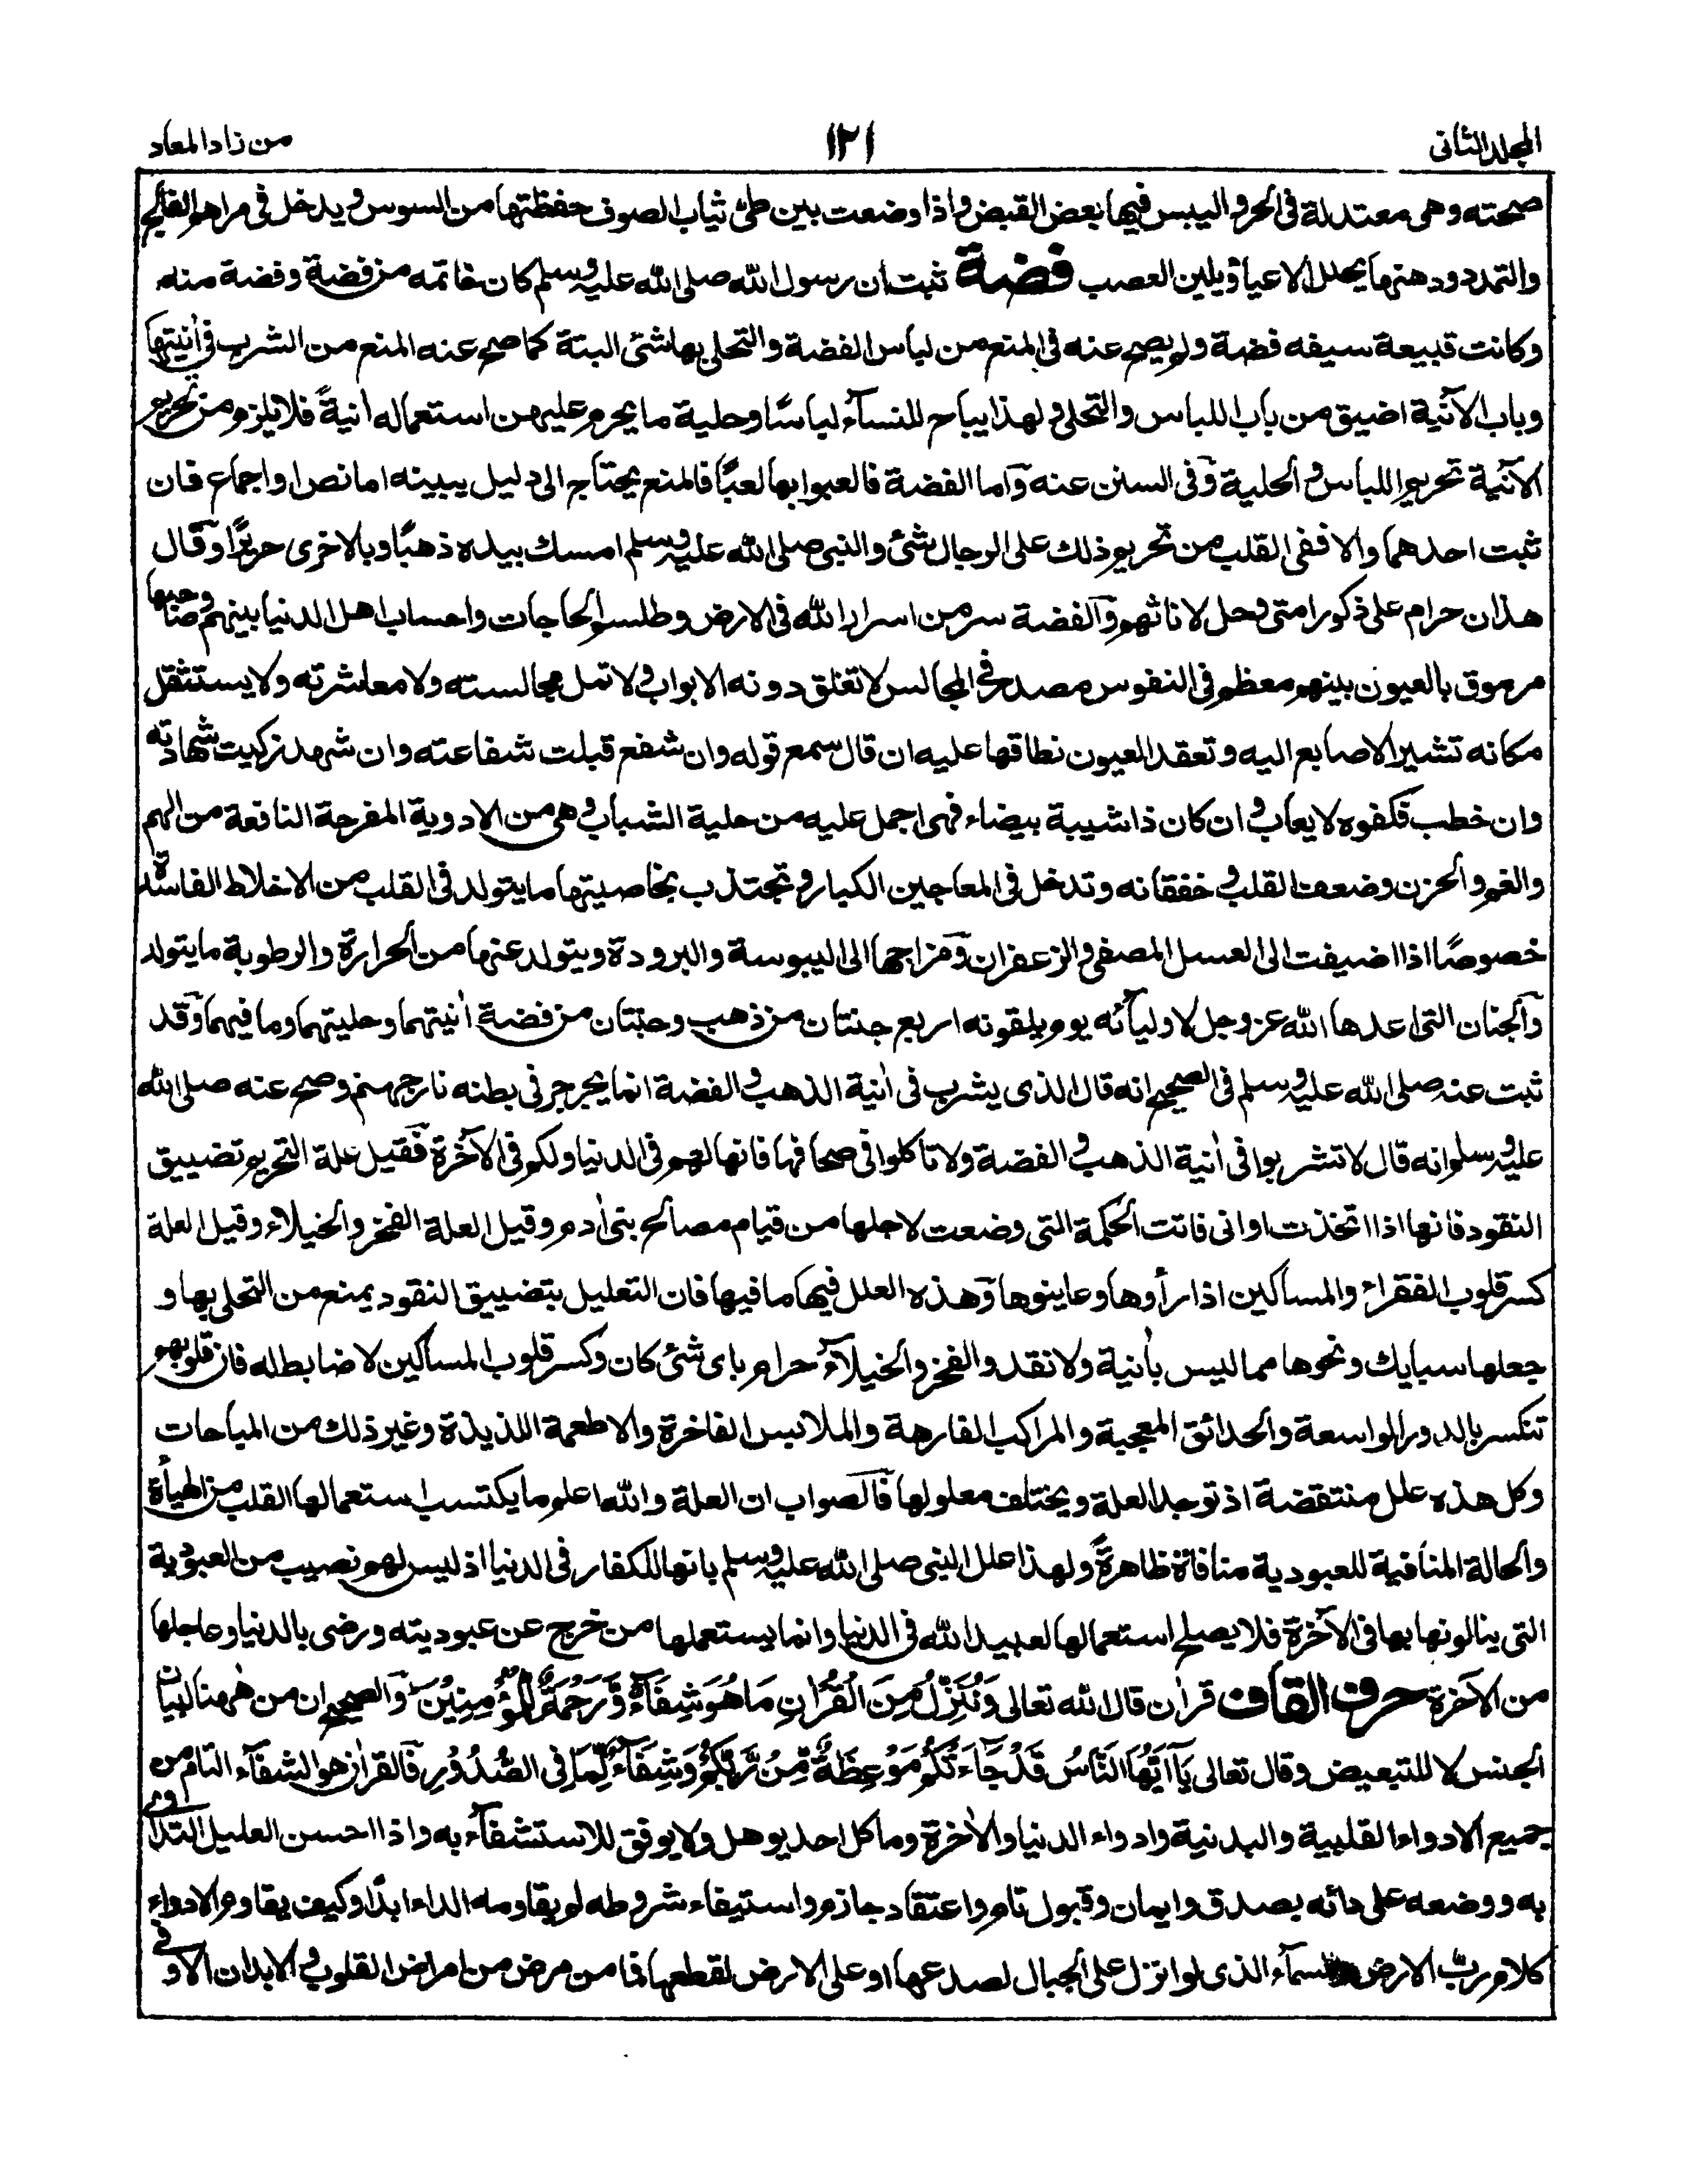 المجلد الثانى
١٢١
من زاد المعاد
صحته وهى معتدلة فى الحر واليبس فيها بعض القبض واذا وضعت بين طى ثياب الصوف حفظتها من السوس ويدخل فى مراهم الفالج
والتمدد ودهنها يحلل الاعياء ويلين العصب فضة ثبت ان رسول الله صلى الله عليه وسلم كان خاتمه من فضة وفضة منه
وكانت قبيعة سيفه فضة ولم يصح عنه فى المنع من لباس الفضة والتحلى بها شئ البتة كما صح عنه المنع من الشرب فى اٰنيتها
وباب الاٰنية اضيق من باب اللباس والتحلى ولهذا يباح للنسآء لباسًا وحلية ما يحرم عليهن استعماله اٰنيةً فلا يلزم من تحريم
الاٰنية تحريم اللباس والحلية وفى السنن عنه واما الفضة فالعبوا بها لعبًا فالمنع يحتاج الى دليل يبينه اما نص او اجماع فان
ثبت احدهما والا ففى القلب من تحريم ذلك على الرجال شئ والنبى صلى الله عليه وسلم امسك بيده ذهبًا وبالاخرى حريرًا وقال
هذان حرام على ذكور امتى وحل لاناثهم والفضة سر من اسرار الله فى الارض وطلسم الحاجات واحساب اهل الدنيا بينهم وصاحبها
مرموق بالعيون بينهم معظم فى النفوس مصدر فى المجالس لا تغلق دونه الابواب ولا تمل مجالسته ولا معاشرته ولا يستثقل
مكانه تشير الاصابع اليه وتعقد العيون نطاقها عليه ان قال سمع قوله وان شفع قبلت شفاعته وان شهد زكيت شهادته
وان خطب فكفوه لا يعاب وان كان ذا شيبة بيضاء فهى اجمل عليه من حلية الشباب وهى من الادوية المفرحة النافعة من الهم
والغم والحزن وضعف القلب وخفقانه وتدخل فى المعاجين الكبار وتجتذب بخاصيتها ما يتولد فى القلب من الاخلاط الفاسدة
خصوصًا اذا اضيفت الى العسل المصفى والزعفران ومزاجها الى اليبوسة والبرودة ويتولد عنها من الحرارة والرطوبة ما يتولد
والجنان التى اعدها الله عز وجل لاوليآئه يوم يلقونه اربع جنتان من ذهب وجنتان من فضة اٰنيتهما وحليتهما وما فيهما وقد
ثبت عنه صلى الله عليه وسلم فى الصحيح انه قال الذى يشرب فى اٰنية الذهب والفضة انما يجرجر فى بطنه نار جهنم وصح عنه صلى الله
عليه وسلم انه قال لا تشربوا فى اٰنية الذهب والفضة ولا تاكلوا فى صحافها فانها لهم فى الدنيا ولكم فى الاٰخرة فقيل علة التحريم تضييق
النقود فانها اذا اتخذت اوانى فاتت الحكمة التى وضعت لاجلها من قيام مصالح بنى اٰدم وقيل العلة الفخر والخيلاء وقيل العلة
كسر قلوب الفقراء والمساكين اذا رأوها وعاينوها وهذه العلل فيها ما فيها فان التعليل بتضييق النقود يمنع من التحلى بها و
جعلها سبايك ونحوها مما ليس باٰنية ولا نقد والفخر والخيلآء حرام باى شئ كان وكسر قلوب المساكين لا ضابط له فان قلوبهم
تنكسر بالدور الواسعة والحدائق المعجبة والمراكب الفارهة والملابس الفاخرة والاطعمة اللذيذة وغير ذلك من المباحات
وكل هذه علل منتقضة اذ توجد العلة ويختلف معلولها فالصواب ان العلة والله اعلم ما يكتسب استعمالها القلب من الهيأة
والحالة المنافية للعبودية منافاة ظاهرةً ولهذا علل النبى صلى الله عليه وسلم بانها للكفار فى الدنيا اذ ليس لهم نصيب من العبودية
التى ينالونها بها فى الاٰخرة فلا يصلح استعمالها لعبيد الله فى الدنيا وانما يستعملها من خرج عن عبوديته ورضى بالدنيا وعاجلها
من الاٰخرة حرف القاف قراٰن قال الله تعالى وَنُنَزِّلُ مِنَ الْقُرْاٰنِ مَا هُوَ شِفَآءٌ وَّرَحْمَةٌ لِّلْمُؤْمِنِيْنَ والصحيح ان من هٰهنا لبيان
الجنس لا للتبعيض وقال تعالى يَآ اَيُّهَا النَّاسُ قَدْ جَآءَتْكُمْ مَوْعِظَةٌ مِّنْ رَّبِّكُمْ وَشِفَآءٌ لِّمَا فِى الصُّدُوْرِ فالقراٰن هو الشفآء التام من
جميع الادواء القلبية والبدنية وادواء الدنيا والاٰخرة وما كل احد يوهل ولا يوفق للاستشفآء به واذا احسن العليل التداوى
به ووضعه على دائه بصدق وايمان وقبول تام واعتقاد جازم واستيفاء شروطه لم يقاومه الداء ابدًا وكيف يقاوم الادواء
كلام رب الارض والسمآء الذى لو انزل على الجبال لصدعها او على الارض لقطعها فما من مرض من امراض القلوب والابدان الا وفى